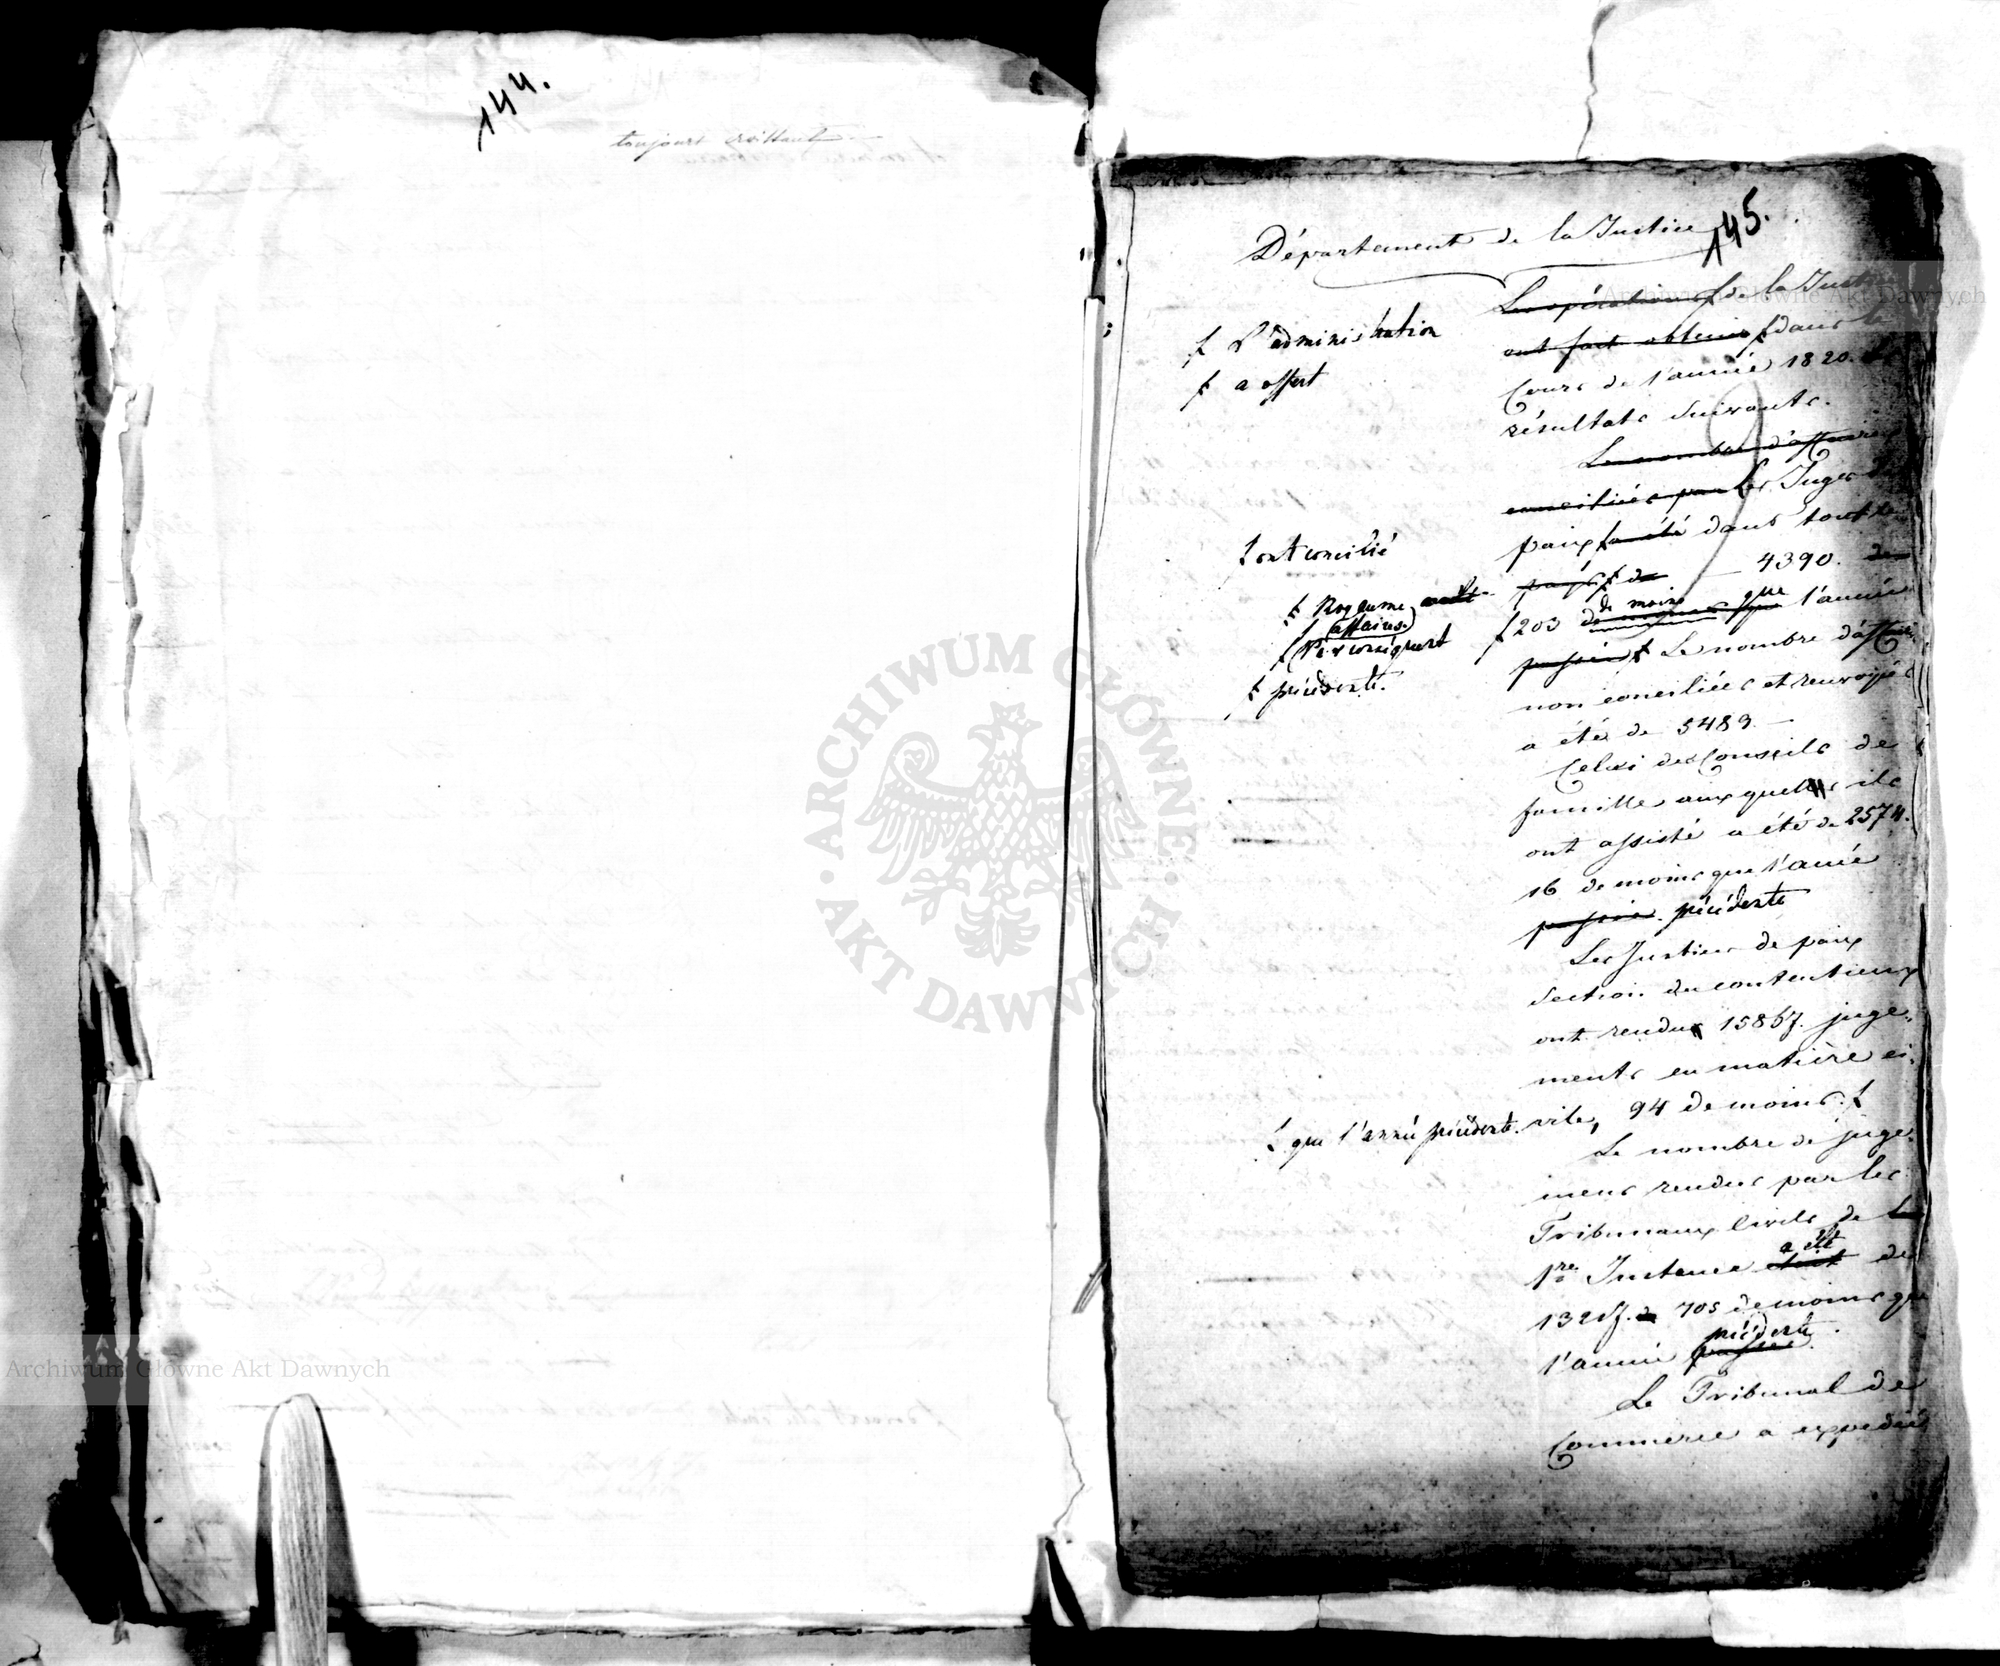 144.
toujours croissant
145.
Département de la Justice
Les opérations ƒ de la Justice
ƒ L'administration
ont fait obtenir ƒ dans le
ƒ a offert
Cours de l'année 1820. les
résultats suivants.
Le nombre d'affaires
conciliées par les Juges de
paix ƒ a été dans tout le
ƒ ont concilié
pays ƒ de — 4390. de
ƒ Royaume
affaires.
ƒ 203 de moins que l'année
ƒ (Par conséquent
passée ƒ Le nombre d'affaires
ƒ précédente.
non conciliées et renvoyées
a été de 5489. —
Celui des Conseils de
famille aux quels ils
ont assisté a été de 2574.
16 de moins que l'anée
passée. précédente
Les Justices de paix
Section du contentieux
ont rendus 15867. juge-
ments en matière ci-
vile, 94 de moins. ƒ
ƒ que l'année précédente.
Le nombre de juge-
mens rendus par les
Tribunaux Civils de la
a été
1re Instance était de
de 705 de moins que
précédente
l'année passée.
Le Tribunal de
Commerce a expédié
ARCHIWUM GŁÓWNE · AKT DAWNYCH ·
Archiwum Główne Akt Dawnych
Archiwum Główne Akt Dawnych